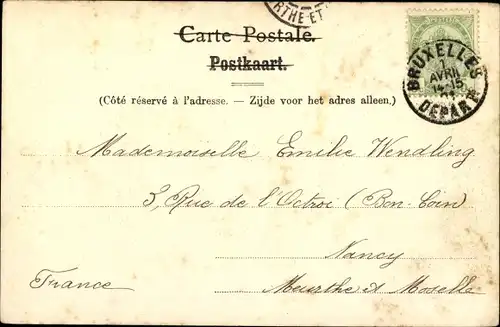 RTHE-ET
Carte Postale.
Postkaart.
(Côté réservé à l'adresse. — Zijde voor het adres alleen.)
BRUXELLES
1
AVRIL
14-15
DEPART
Mademoiselle Emilie Wendling
3, Rue de l'Octroi (Bon-Coin)
Nancy
France
Meurthe et Moselle